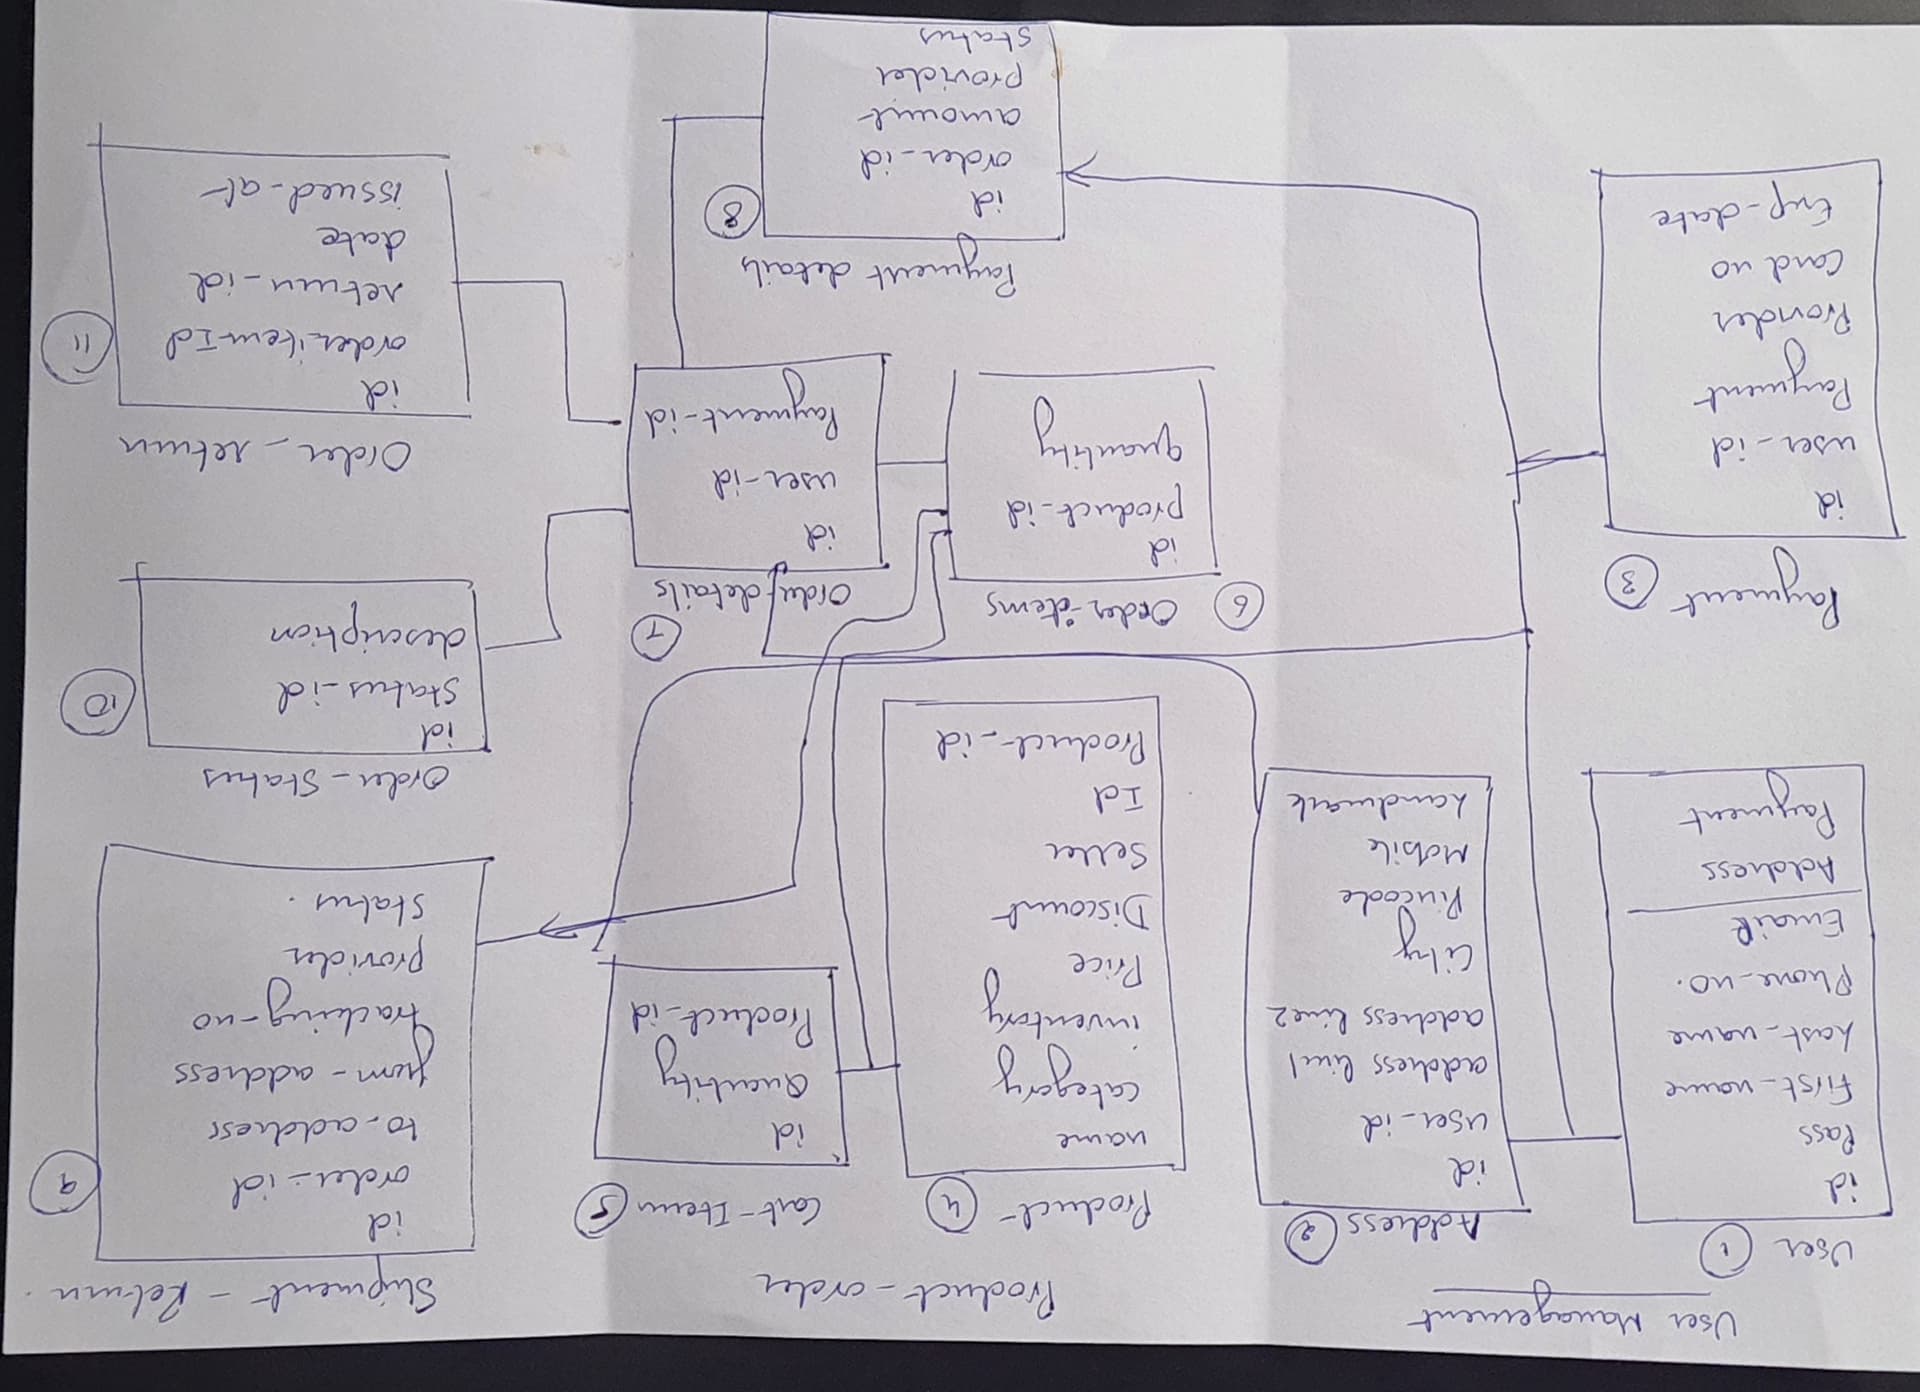 User Management
User 1
id
Pass
First-name
Last-name
Phone-no.
Email
Address
Payment
Address 2
id
user-id
address line1
address line2
City
Pincode
Mobile
Landmark
Payment 3
id
user-id
Payment
Provider
Card no
Exp-date
Product-order
Product 4
name
category
inventory
Price
Discount
Seller
Id
Product-id
Cart-Item 5
id
Quantity
Product-id
Order-items 6
id
product-id
quantity
Order-details 7
id
user-id
Payment-id
Payment details 8
id
order-id
amount
provider
status
Shipment - Return.
9
id
order-id
to-address
from-address
tracking-no
provider
status.
Order-Status
10
id
status-id
description
Order-return
11
id
orderitem-Id
return-id
date
issued-at